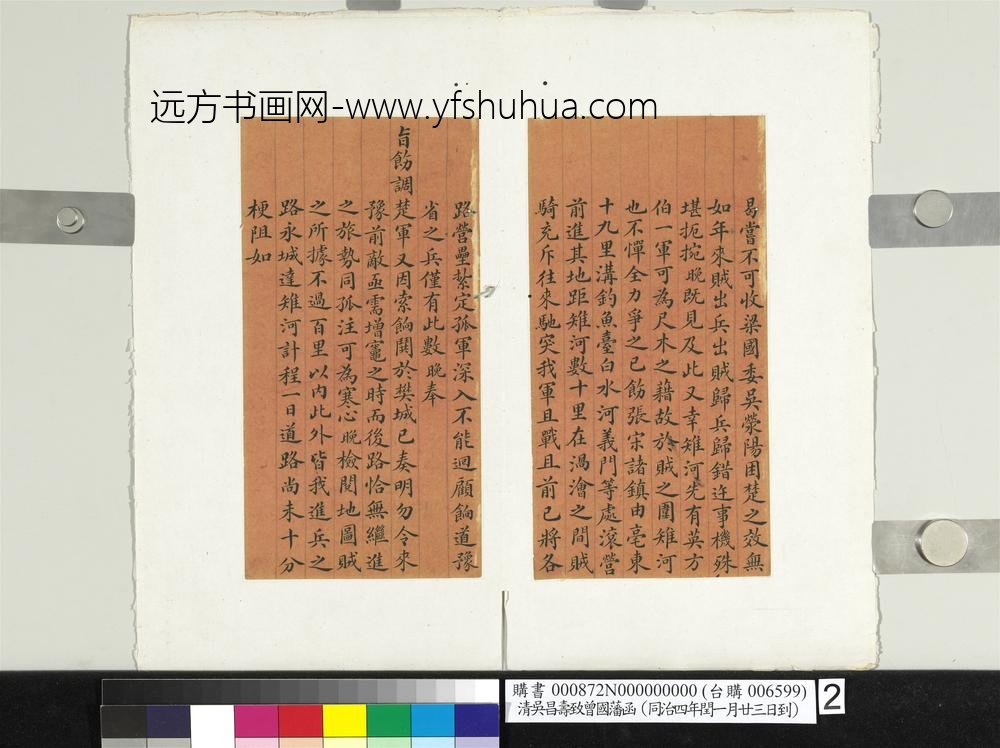 远方书画网-www.yfshuhua.com
曷嘗不可收梁國委吳滎陽困楚之效無
如年來賊出兵出賊歸兵歸錯迕事機殊
堪扼捥晚既見及此又幸雉河先有英方
伯一軍可為尺木之藉故於賊之圍雉河
也不憚全力爭之已飭張宋諸鎮由亳東
十九里溝釣魚臺白水河義門等處滾營
前進其地距雉河數十里在渦澮之間賊
騎充斥往來馳突我軍且戰且前已將各
路營壘紮定孤軍深入不能迴顧餉道豫
省之兵僅有此數晚奉
旨飭調楚軍又因索餉鬨於樊城已奏明勿令來
豫前敵亟需增竈之時而後路恰無繼進
之旅勢同孤注可為寒心晚檢閱地圖賊
之所據不過百里以內此外皆我進兵之
路永城達雉河計程一日道路尚未十分
梗阻如
購書 000872N000000000 (台購 006599)
清吳昌壽致曾國藩函（同治四年閏一月廿三日到）
2